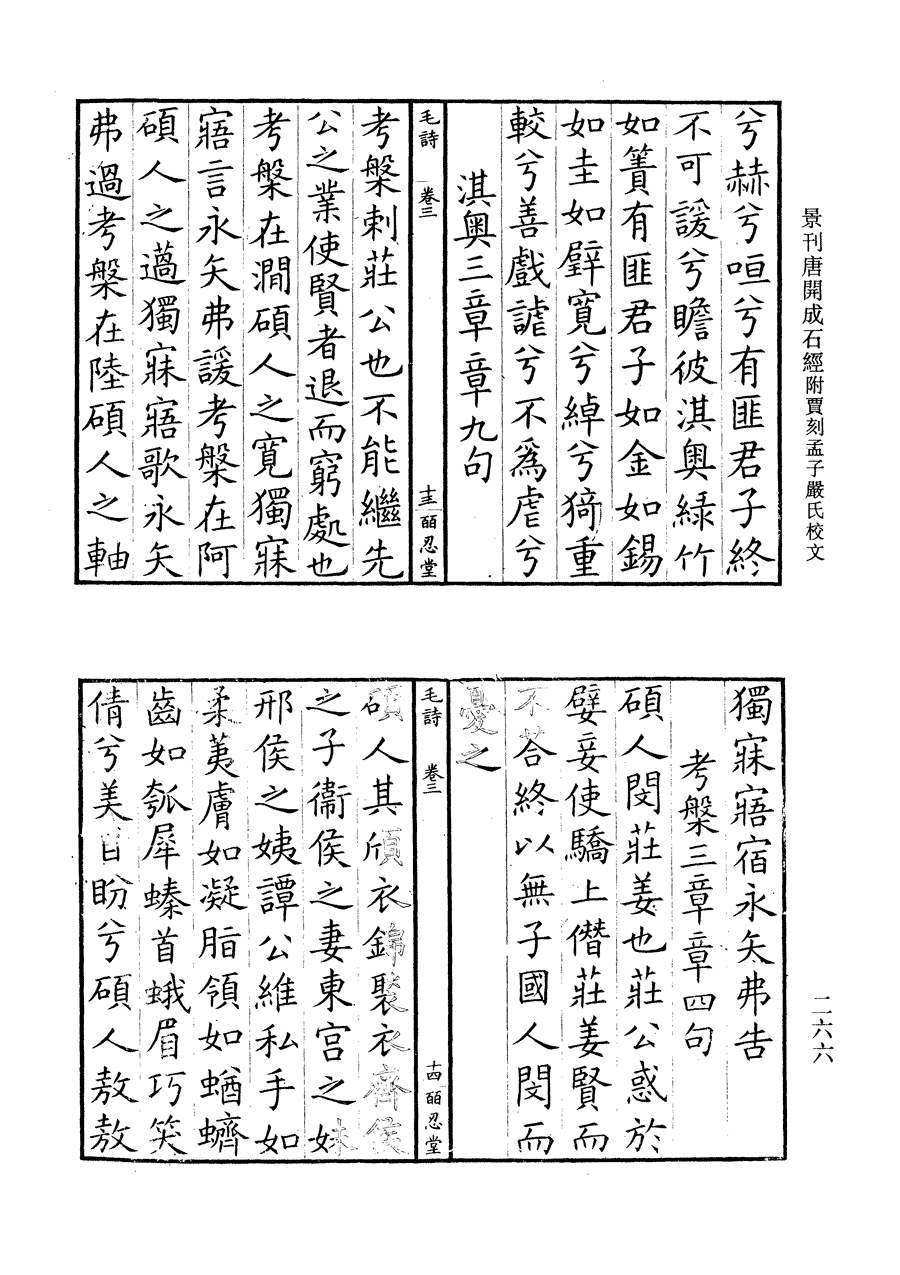 景刊唐開成石經附賈刻孟子嚴氏校文
兮赫兮咺兮有匪君子終
不可諼兮瞻彼淇奧綠竹
如簀有匪君子如金如錫
如圭如璧寬兮綽兮猗重
較兮善戲謔兮不為虐兮
淇奧三章章九句
毛詩 卷三 十三 皕忍堂
考槃刺莊公也不能繼先
公之業使賢者退而窮處也
考槃在澗碩人之寬獨寐
寤言永矢弗諼考槃在阿
碩人之薖獨寐寤歌永矢
弗過考槃在陸碩人之軸
二六六
獨寐寤宿永矢弗告
考槃三章章四句
碩人閔莊姜也莊公惑於
嬖妾使驕上僭莊姜賢而
不荅終以無子國人閔而
憂之
毛詩 卷三 十四 皕忍堂
碩人其頎衣錦褧衣齊侯
之子衞侯之妻東宮之妹
邢侯之姨譚公維私手如
柔荑膚如凝脂領如蝤蠐
齒如瓠犀螓首蛾眉巧笑
倩兮美目盼兮碩人敖敖